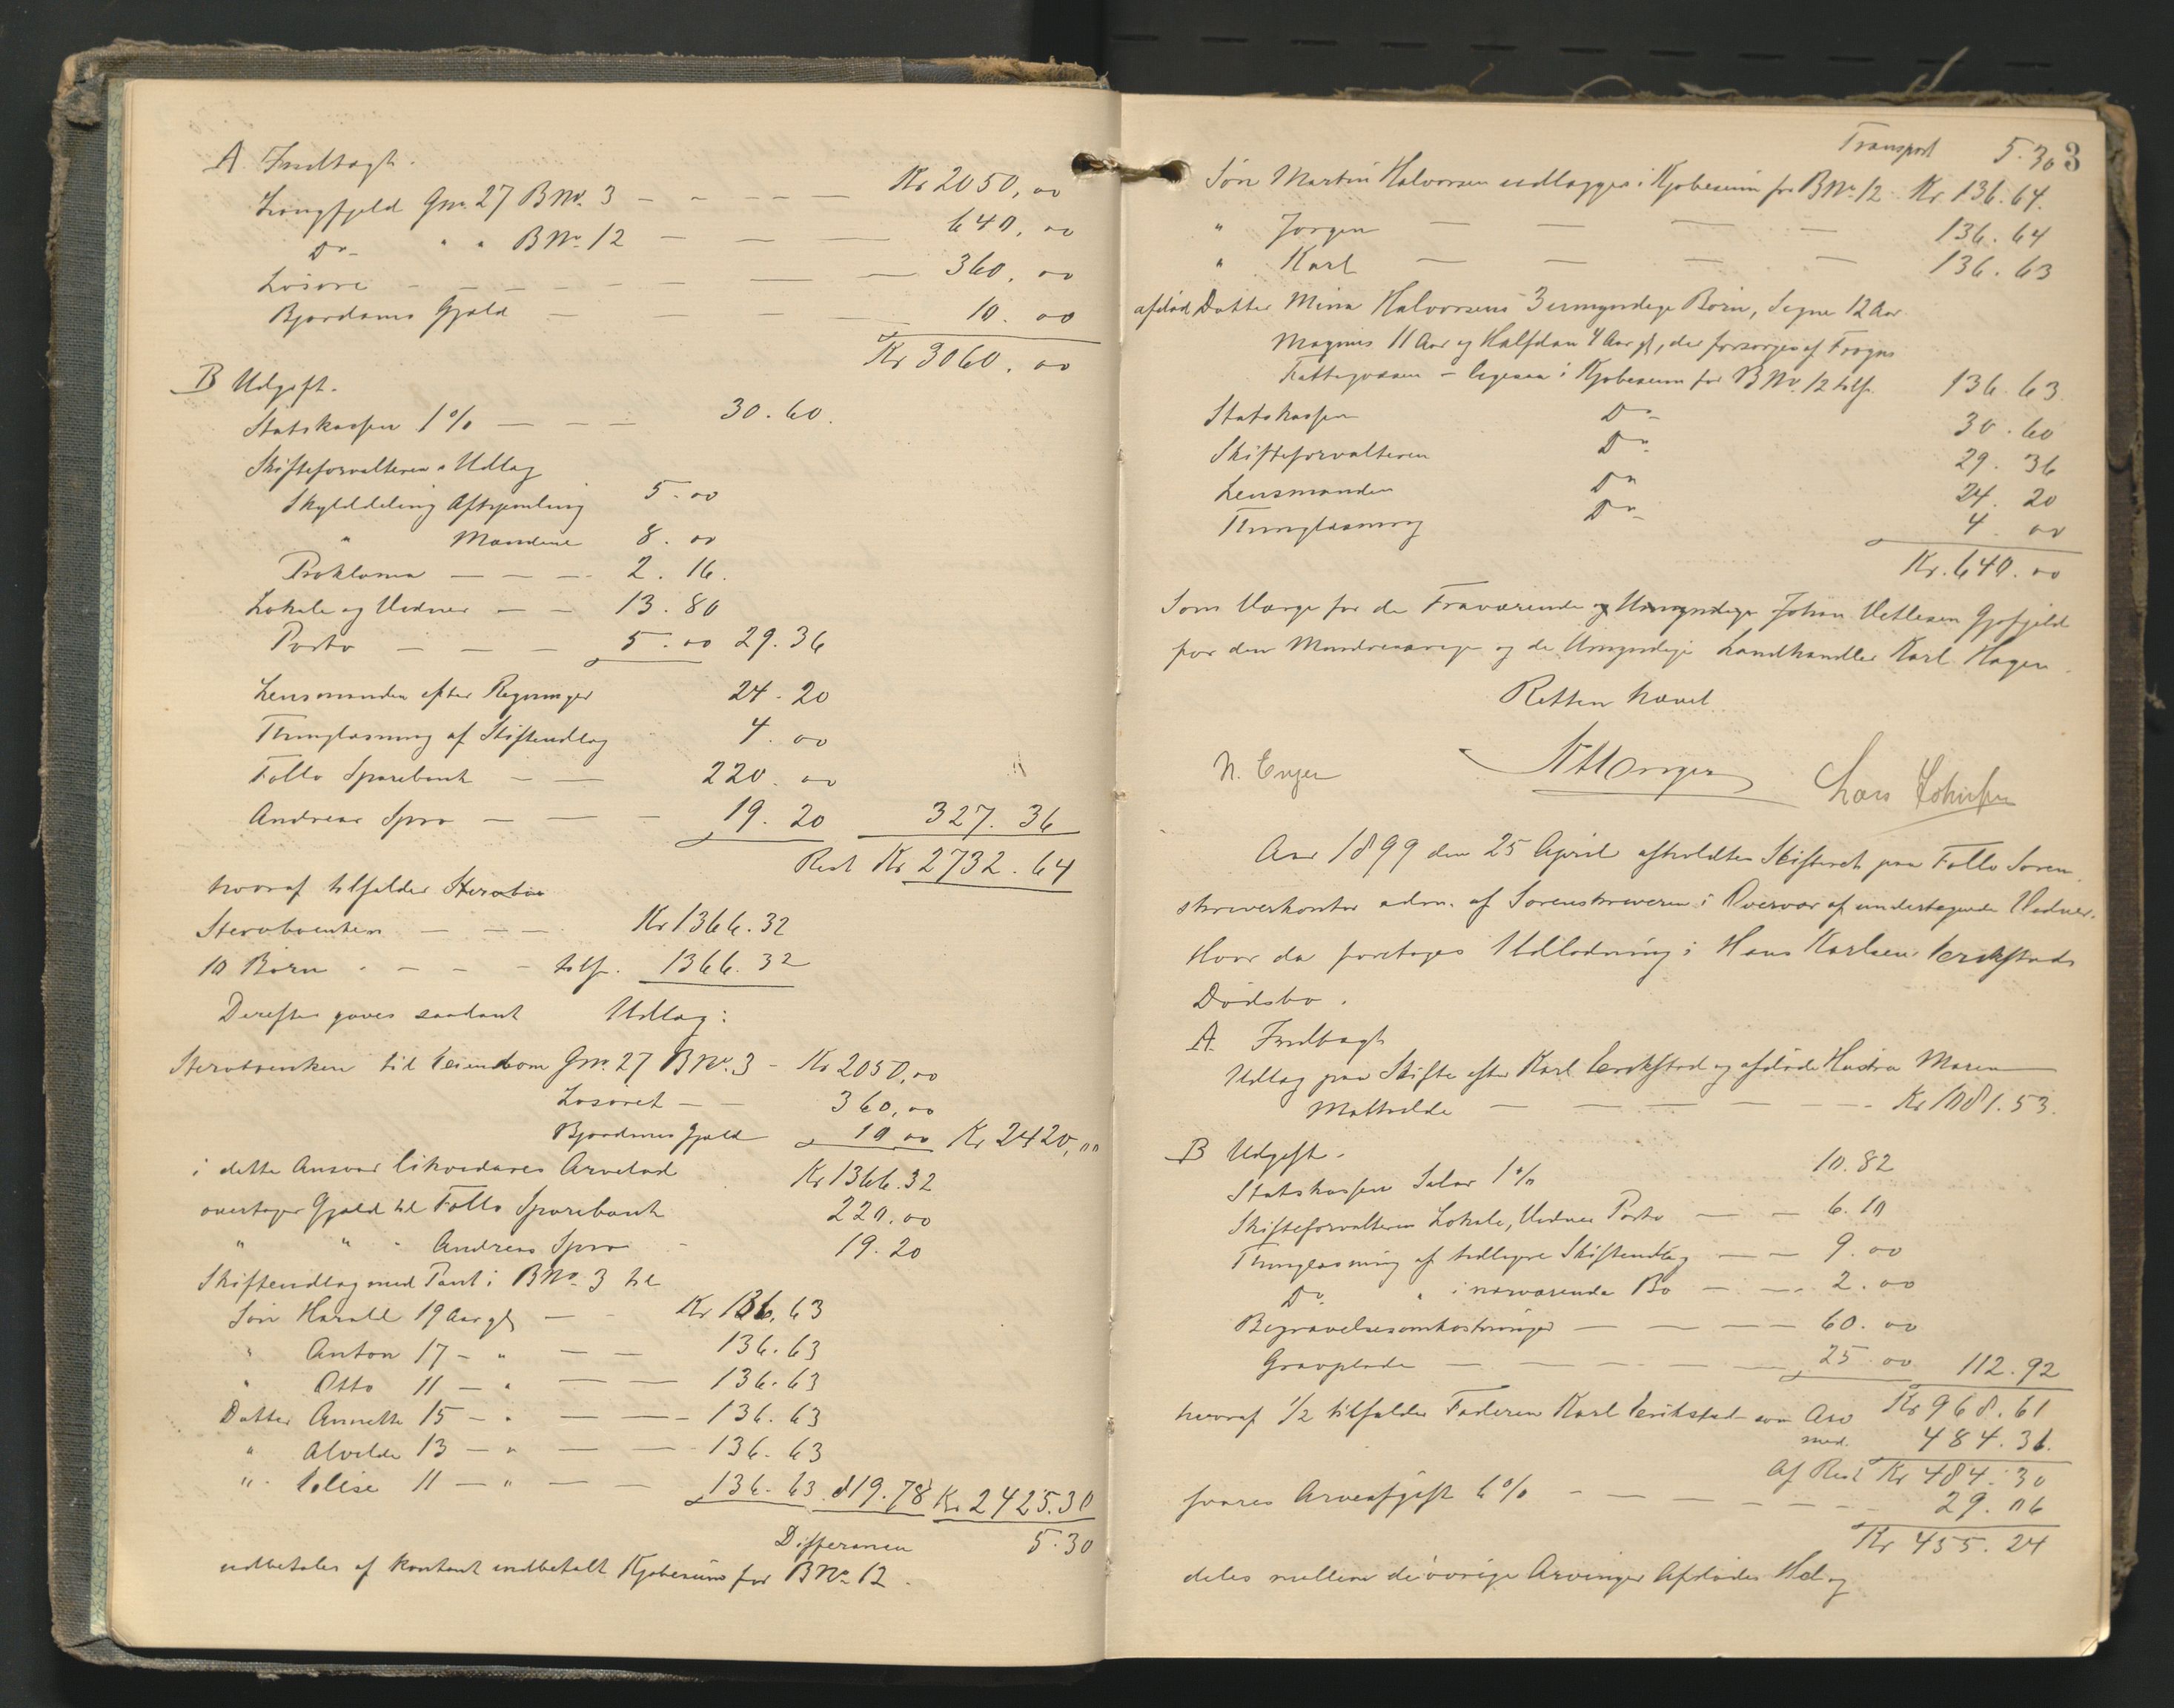 A Indtægt.
Krongfjeld Gno. 27 BNo. 3 - - - - - Kr 2050,00
Do. " " BNo. 12 - - - 640,00
Løsøre - - - - - - - 360,00
Bjordams Gjæld - - - - - 10.00
Kr 3060.00
B Udgift.
Statskassen 1% - - - 30.60.
Skifteforvalterens Udlæg
Skylddeling Aftrenling 5.00
" Mændene 8.00
Proklama - - - - 2.16.
Lokale og Vidner - - 13.80
Porto - - - 5.00 29.36
Lensmanden efter Regninger 24.20
Thinglæsning af Skifteudlæg 4.00
Follo Sparebank - - 220.00
Andreas Spro - - - 19.20 327.36
Rest Kr 2732.64
hvoraf tilfalder
Stervboenken - - - - Kr 1366.32
10 Børn - - - - tilsf. 1366.32
Derefter gaves saadant Udlæg:
Stervboenken til Eiendom Gno. 27 BNo. 3 - Kr 2050,00
Løsøret - - 360,00
Bjordams Gjæld 10.00 Kr 2420,00
i dette Ansvar likvideres Arvelod Kr 1366.32
overtager Gjæld til Follo Sparebank 220.00
" " " Andreas Spro - 19.20
Skifteudlæg med Pant i BNo. 3 til
Søn Harald 19 Aar gl - - Kr 136,63
" Anton 17 - " - - 136.63
" Otto 11 - " - - 136.63
Datter Annette 15 - " - - 136.63
" Alvilde 13 - " - - 136.63
" Elise 11 - " - - 136.63 819.78 Kr 2425.30
Differencen 5.30
udbetales af kontant indbetalt Kjøbesum for BNo. 12.
3
Transport 5.30
Søn Martin Halvorsen udlægges i Kjøbesum for BNo. 12 Kr. 136.64.
" Jørgen - - - - 136.64
" Karl - - - - 136.63
afdød Datter Mina Halvorsens 3 umyndige Børn, Signe 12 Aar
Magnus 11 Aar og Halfdan 4 Aar gl, der forsørges af Frogns
Fattigvæsen - ligesaa i Kjøbesum for BNo. 12 tilsf. 136.63
Statskassen Do - 30.60
Skifteforvalteren Do - 29.36
Lensmanden Do 24.20
Thinglæsning Do - 4.00
Kr. 640.00
Som Værge for de Fraværende og Umyndige Johan Vetlesen Gjøfjeld
for den Mindreaarige og de Umyndige Landhandler Karl Hagen.
Retten hævet.
N. Enger Lars Johnsen
Aar 1899 den 25 April afholdtes Skifteret paa Follo Soren
skriverkontor adm. af Sorenskriveren i Overvær af undertegnede Vidner.
Hvor da foretoges Udlodning i Hans Karlsen Erikstads
Dødsbo.
A. Indtægt
Udlæg paa Skifte efter Karl Erikstad og afdøde Hustru Maren
Mathilde - - - - - - Kr 1081.53.
B Udgift.
Statskassen Salær 1% 10.82
Skifteforvalteren Lokale, Vidner Porto - - 6.10
Thinglæsning af tidligere Skifteudlæg - - 9.00
Do. " i nærværende Bo - - - 2.00
Begravelsesomkostninger - - - - 60.00
Gravplade - - - - - - 25.00 112.92
Kr 968.61
hvoraf 1/2 tilfalder Faderen Karl Erikstad som Arv
med. 484.31.
Af Rest Kr 484.30
svares Arveafgift 6% - - - - - - 29.06
Kr 455.24
deles mellem de øvrige Arvinger Afdødes Hel og